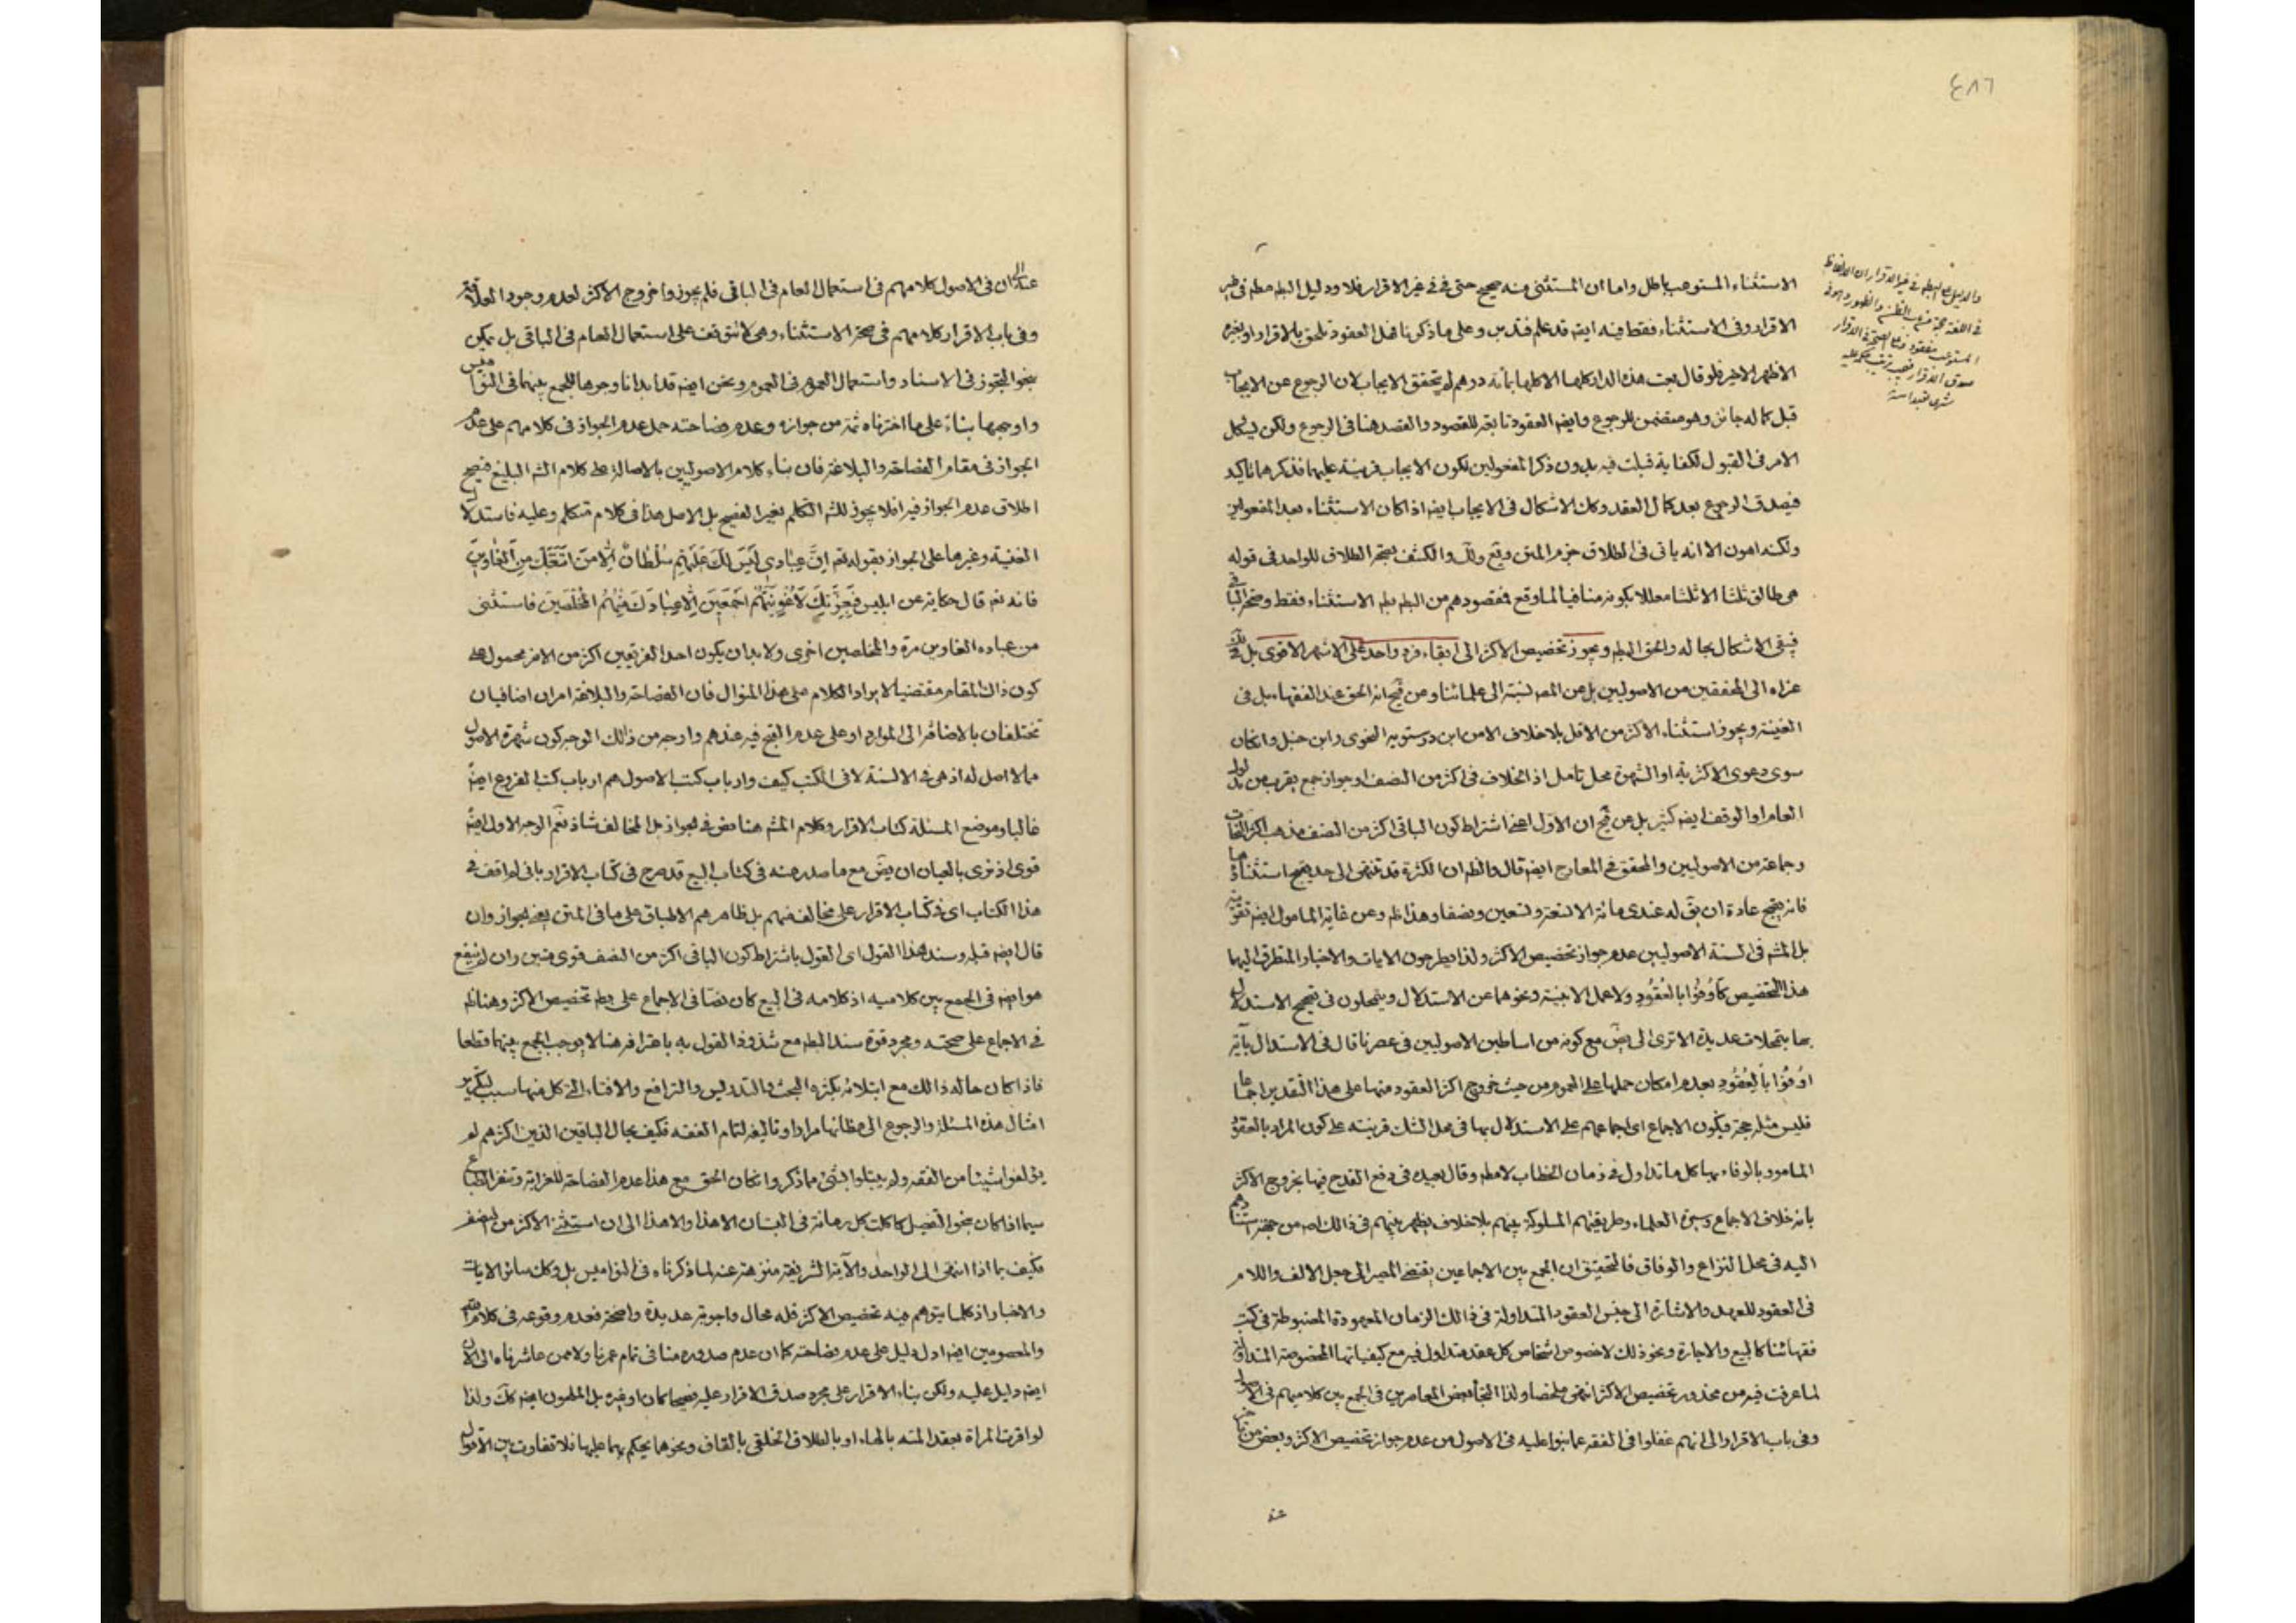 ٤٨٦
الاستثناء المستوعب باطل واما ان المستثنى منه صحيح حتى فى غير الاقرار فلا ودليل البطه مطه فى غير
الاقرار وفى الاستثناء فقط فيه ايضه قد علم فتدبر وعلى ماذكرنا فهل العقود تلحق بالاقرار او بغيره
الاظهر الاخير فلو قال بعت هذه الدار كلها الا كلها بمأة درهم لم يتحقق الايجاب لان الرجوع عن الايجاب
قبل كماله جائز وهو متضمن للرجوع وايضه العقود تابعة للقصود والقصد هنا فى الرجوع ولكن يشكل
الامر فى القبول لكفاية قبلت فيه بدون ذكر المفعولين لكون الايجاب قرينة عليهما فذكرهما تاكيد
فيصدق الرجوع بعد كمال العقد وكك الاشكال فى الايجاب ايضه اذا كان الاستثناء بعد المفعولين
ولكنه اهون الا انه ياتى فى الطلاق جزم المتن وقع ولك والكشف بصحة الطلاق للواحد فى قوله
هى طالق ثلثا الا ثلثا معللا بكونه منافيا لما وقع فمقصودهم من البطه بطه الاستثناء فقط وصحة الباقى
فبقى الاشكال بحاله والحق البطه ويجوز تخصيص الاكثر الى ابقاء فرد واحد على الاشهر الاقوى بل فى
عزاه الى المحققين من الاصوليين بل عن المصه نسبته الى علمائنا وعن فخ انه الحق عند الفقهاء بل فى
الغنية ويجوز استثناء الاكثر من الاقل بلا خلاف الا من ابن درستويه النحوى وابن حنبل وان كان
سوى دعوى الاكثرية او الشهرة محل تامل اذ الخلاف فى اكثر من النصف او جواز جمع يقرب من مدلول
العام او الوقف ايضه كثير بل عن فخ ان الاول اعنى اشتراط كون الباقى اكثر من النصف مذهب اكثر النحات
وجماعة من الاصوليين والمحقق فى المعارج ايضه قال والظه ان الكثرة قد تنتهى الى حد يقبح استثناؤها
فانه يقبح عادة ان يق له عندى مائة الا تسعة وتسعين ونصفا وهذا ظه وعن غاية المامول ايضه تقويته
بل المشه فى السنة الاصوليين عدم جواز تخصيص الاكثر ولذا يطرحون الايات والاخبار المتطرق اليها
هذا التخصيص كأوفوا بالعقود ولا عمل الا بنية ونحوهما عن الاستدلال ويتمحلون فى تصحيح الاستدلال
بها بتمحلات عديدة الا ترى الى بعض مع كونه من اساطين الاصوليين فى عصرنا قال فى الاستدلال بآية
اوفوا بالعقود بعدم امكان حملها على العموم من حيث خروج اكثر العقود منها على هذا التقدير اجماعا
فليس مثله حجة فيكون الاجماع اى اجماعهم على الاستدلال بها فى محل الشك قرينة على كون المراد بالعقود
المامور بالوفاء بها كل ما تداول فى زمان الخطاب لا مطه وقال بعيده فى دفع القدح فيها بخروج الاكثر
بانه خلاف الاجماع وسيرة العلماء وطريقتهم المسلوكة بينهم بلا خلاف يظهر بينهم فى ذالك اصه من جهة استنادهم
اليه فى محل النزاع والوفاق فالتحقيق ان الجمع بين الاجماعين يقتضى المصير الى جعل الالف واللام
فى العقود للعهد والاشارة الى جنس العقود المتداولة فى ذالك الزمان المعهودة المضبوطة فى كتب
فقهائنا كالبيع والاجارة ونحو ذلك لا خصوص اشخاص كل عقد متداول فيه مع كيفياتها المخصوصة المتداولة
لما عرفت فيه من محذور تخصيص الاكثر انتهى ملخصا ولذا التجأ بعض المعاصرين فى الجمع بين كلاميهم فى الاصول
وفى باب الاقرار الى انهم غفلوا فى الفقه عما بنوا عليه فى الاصول من عدم جواز تخصيص الاكثر وبعض من تاخر
عنه
عنه الى ان فى الاصول كلامهم فى استعمال العام فى الباقى فلم يجوزوا خروج الاكثر لعدم وجود العلاقة
وفى باب الاقرار كلامهم فى صحة الاستثناء وهى لا تتوقف على استعمال العام فى الباقى بل يمكن
بنحو التجوز فى الاسناد واستعمال العموم فى العموم ونحن ايضه قد ابدانا وجوها للجمع بينهما فى النواميس
واوجهها بناء على ما اخترناه ثمة من جوازه وعدم فصاحته حمل عدم الجواز فى كلامهم على عدم
الجواز فى مقام الفصاحة والبلاغة فان بناء كلام الاصوليين بالاصالة على كلام الشه البليغ فيصح
اطلاق عدم الجواز فيه اذ لا يجوز للشه التكلم بغير الفصيح بل الاصل هذا فى كلام متكلم وعليه فاستدلال
الغنية وغيرها على الجواز بقوله تعه ان عبادى ليس لك عليهم سلطان الا من اتبعك من الغاوين
فانه تعه قال حكاية عن ابليس فبعزتك لاغوينهم اجمعين الا عبادك منهم المخلصين فاستثنى
من عباده الغاوين مرة والمخلصين اخرى ولا بد ان يكون احد الفريقين اكثر من الاخر محمول على
كون ذاك المقام مقتضيا لايراد الكلام على هذا المنوال فان الفصاحة والبلاغة امران اضافيان
تختلفان بالاضافة الى الموارد او على عدم القبح فيه عندهم واوجه من ذالك الوجه كون شهرة الاصول
مما لا اصل له اذ هى فى الالسنة لا فى الكتب كيف وارباب كتب الاصول هم ارباب كتب الفروع ايضه
غالبا وموضع المسئلة كتاب الاقرار وكلام المشه هنا نص فى الجواز بل المخالف شاذ نعم الوجه الاول ايضه
قوى اذ نرى بالعيان ان بعض مع ما صدر منه فى كتاب البيع قد صرح فى كتاب الاقرار بانى لم اقف فى
هذا الكتاب اى فى كتاب الاقرار على مخالف منهم بل ظاهرهم الاطباق على ما فى المتن يعنى الجواز وان
قال ايضه قبله وسند هذا القول اى القول باشتراط كون الباقى اكثر من النصف قوى متين وان لم ينفع
هو ايضه فى الجمع بين كلاميه اذ كلامه فى البيع كان نصا فى الاجماع على بطه تخصيص الاكثر وهنا ظه
فى الاجماع على صحته ومجرد قوة سند البطه مع شذوذ القول به باعترافه هنا لا يوجب الجمع بينهما قطعا
فاذا كان حاله ذالك مع ابتلائه بكثرة البحث والتدريس والترافع والافتاء التى كل منها سبب لتكرير
امثال هذه المسئلة والرجوع الى مظانها مرارا وتاليفه لتمام الفقه فكيف بحال الباقين الذين اكثرهم لم
يؤلفوا شيئا من الفقه ولم يبتلوا بشئ مما ذكر وان كان الحق مع هذا عدم الفصاحة للغرابة وتنفر الطباع
سيما اذا كان بنحو التفصيل كاكلت كل رمانة فى البستان الا هذا والا هذا الى ان استثنى الاكثر من النصف
فكيف بما اذا انتهى الى الواحد والآية الشريفة منزهة عنه لما ذكرناه فى النواميس بل وكك سائر الايات
والاخبار اذ كلما يتوهم فيه تخصيص الاكثر فله محال واجوبة عديدة واضحة فعدم وقوعه فى كلام الله
والمعصومين ايضه ادل دليل على عدم فصاحته كما ان عدم صدوره منا فى تمام عمرنا ولا ممن عاشرناه الى الان
ايضه دليل عليه ولكن بناء الاقرار على مجرد صدق الاقرار عليه فصيحا كان او غيره بل الملحون ايضه كك ولذا
لو اقرت المراة بعقد المته بالهاء او بالطلاق الخلقى بالقاف ونحوهما يحكم بهما عليها فلا تفاوت بين الاقوال